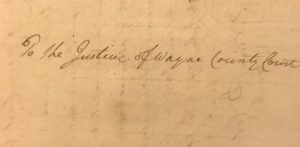 To the Justice of Wayne County Court